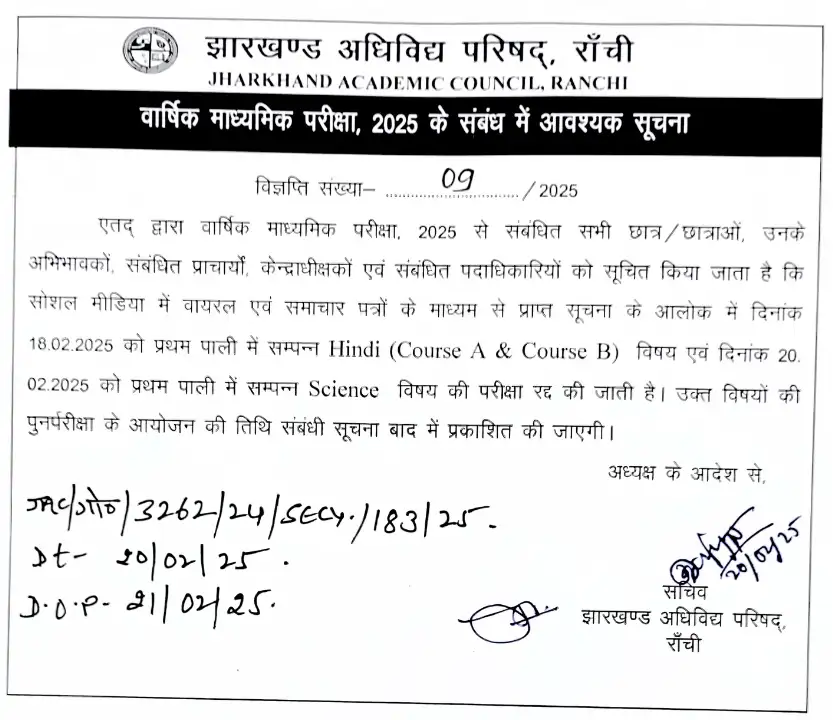 झारखण्ड अधिविद्य परिषद्, राँची
JHARKHAND ACADEMIC COUNCIL, RANCHI
वार्षिक माध्यमिक परीक्षा, 2025 के संबंध में आवश्यक सूचना
विज्ञप्ति संख्या– 09 /2025
एतद् द्वारा वार्षिक माध्यमिक परीक्षा, 2025 से संबंधित सभी छात्र/छात्राओं, उनके
अभिभावकों, संबंधित प्राचार्यो, केन्द्राधीक्षकों एवं संबंधित पदाधिकारियों को सूचित किया जाता है कि
सोशल मीडिया में वायरल एवं समाचार पत्रों के माध्यम से प्राप्त सूचना के आलोक में दिनांक
18.02.2025 को प्रथम पाली में सम्पन्न Hindi (Course A & Course B) विषय एवं दिनांक 20.
02.2025 को प्रथम पाली में सम्पन्न Science विषय की परीक्षा रद्द की जाती है। उक्त विषयों की
पुनर्परीक्षा के आयोजन की तिथि संबंधी सूचना बाद में प्रकाशित की जाएगी।
अध्यक्ष के आदेश से,
JAC/गो०/3262/24/SECY./183/25.
Dt- 20/02/25.
D.O.P- 21/02/25.
20/02/25
सचिव
झारखण्ड अधिविद्य परिषद्,
राँची